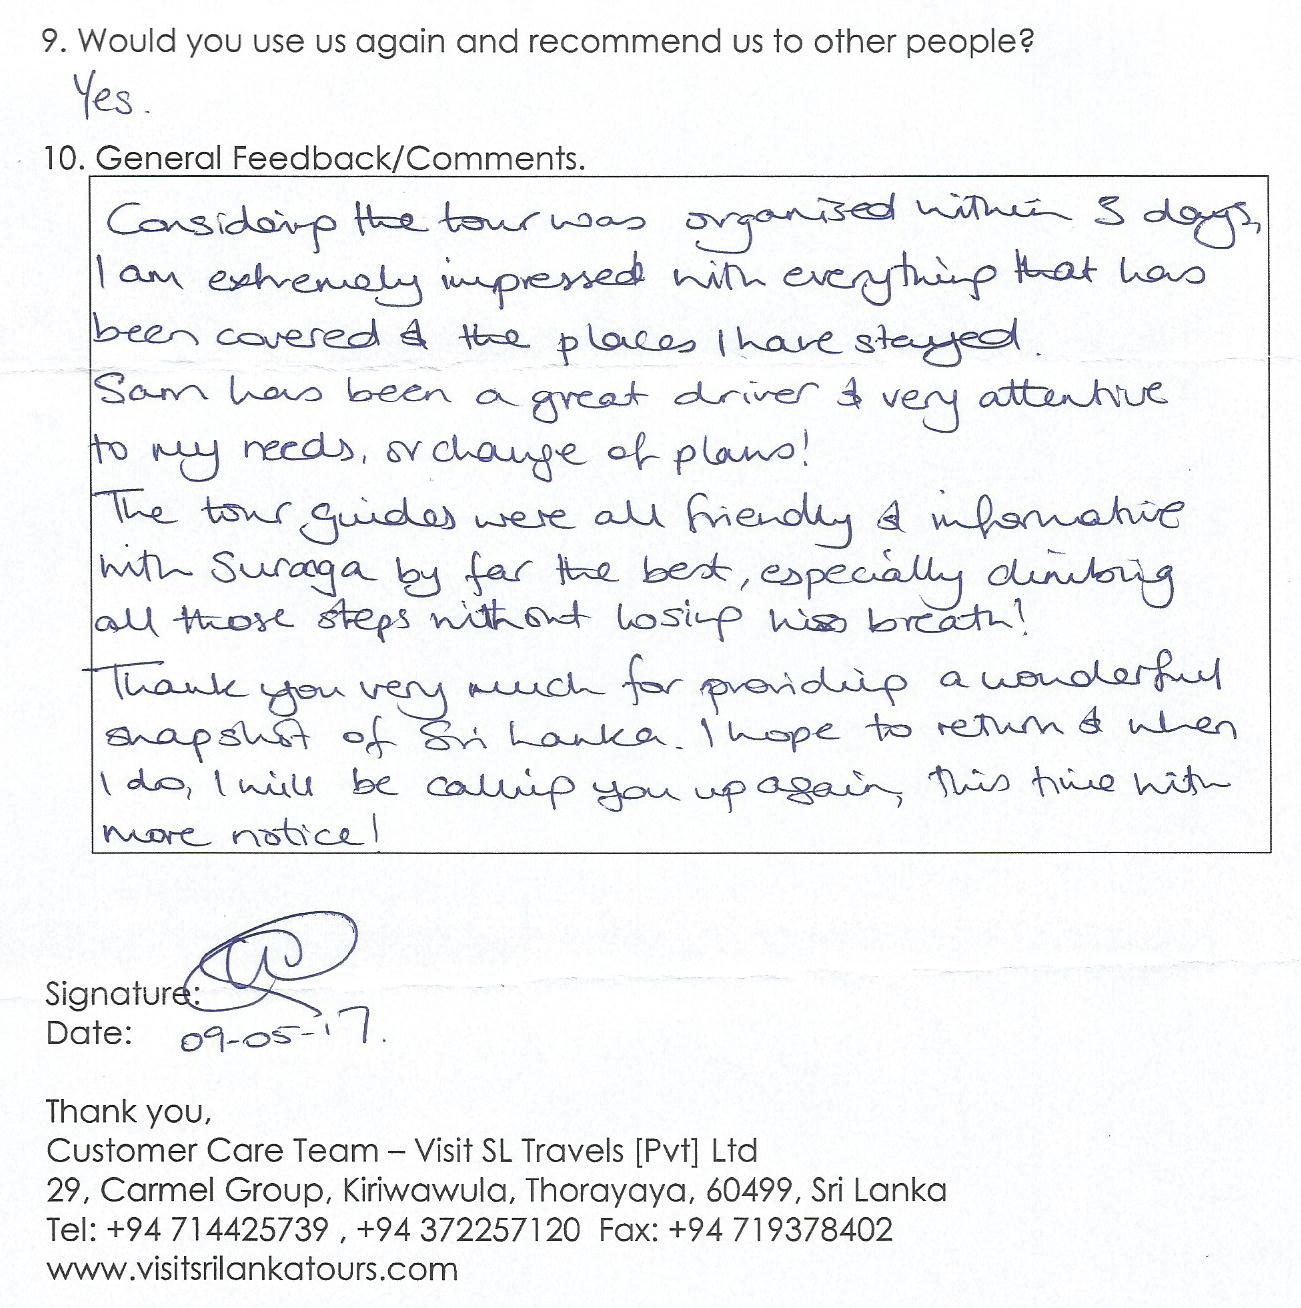 9. Would you use us again and recommend us to other people?
Yes.
10. General Feedback/Comments.
Considering the tour was organised within 3 days,
I am extremely impressed with everything that has
been covered & the places I have stayed.
Sam has been a great driver & very attentive
to my needs, or change of plans!
The tour guides were all friendly & informative
with Suraga by far the best, especially climbing
all those steps without losing his breath!
Thank you very much for providing a wonderful
snapshot of Sri Lanka. I hope to return & when
I do, I will be calling you up again, this time with
more notice!
Signature:
Date: 09-05-17.
Thank you,
Customer Care Team – Visit SL Travels [Pvt] Ltd
29, Carmel Group, Kiriwawula, Thorayaya, 60499, Sri Lanka
Tel: +94 714425739 , +94 372257120 Fax: +94 719378402
www.visitsrilankatours.com